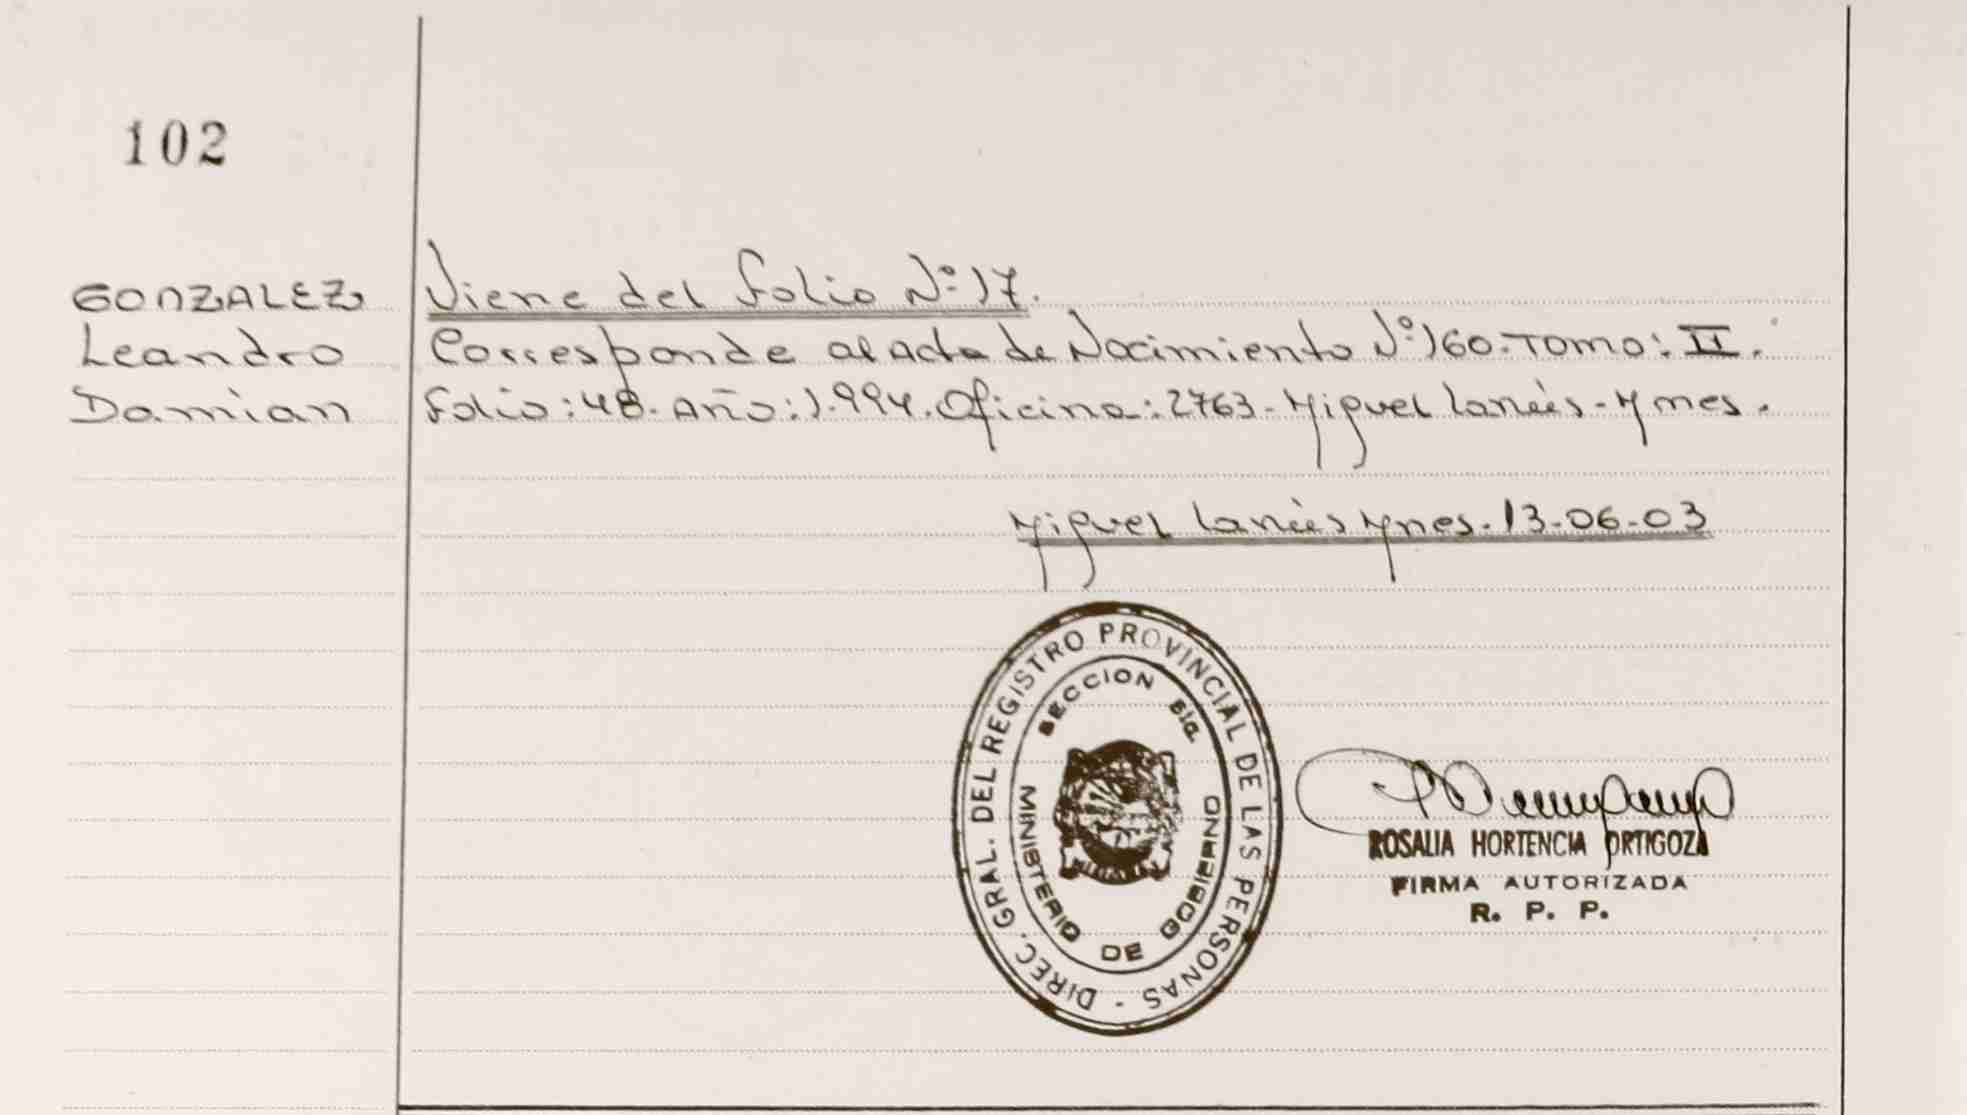 102
GONZALEZ
Leandro
Damian
Viene del folio Nº 17.
Corresponde al Acta de Nacimiento Nº 160. Tomo: II.
folio: 48. Año: 1.994. Oficina: 2763 - Miguel Lanús - Ymes.
Miguel Lanús Ymes. 13-06-03
DIREC. GRAL. DEL REGISTRO PROVINCIAL DE LAS PERSONAS -
SECCION
MINISTERIO DE GOBIERNO
ROSALIA HORTENCIA ORTIGOZA
FIRMA AUTORIZADA
R. P. P.